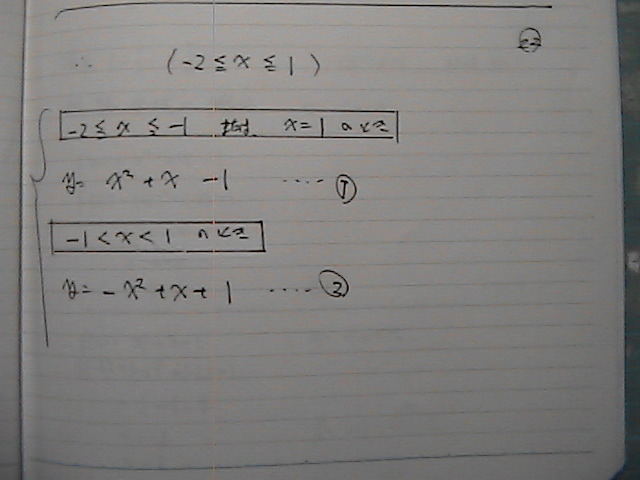 ∴ (-2 ≦ x ≦ 1)
-2 ≦ x ≦ -1 または x = 1 のとき
y = x² + x - 1 ‥‥ ①
-1 < x < 1 のとき
y = - x² + x + 1 ‥‥ ②